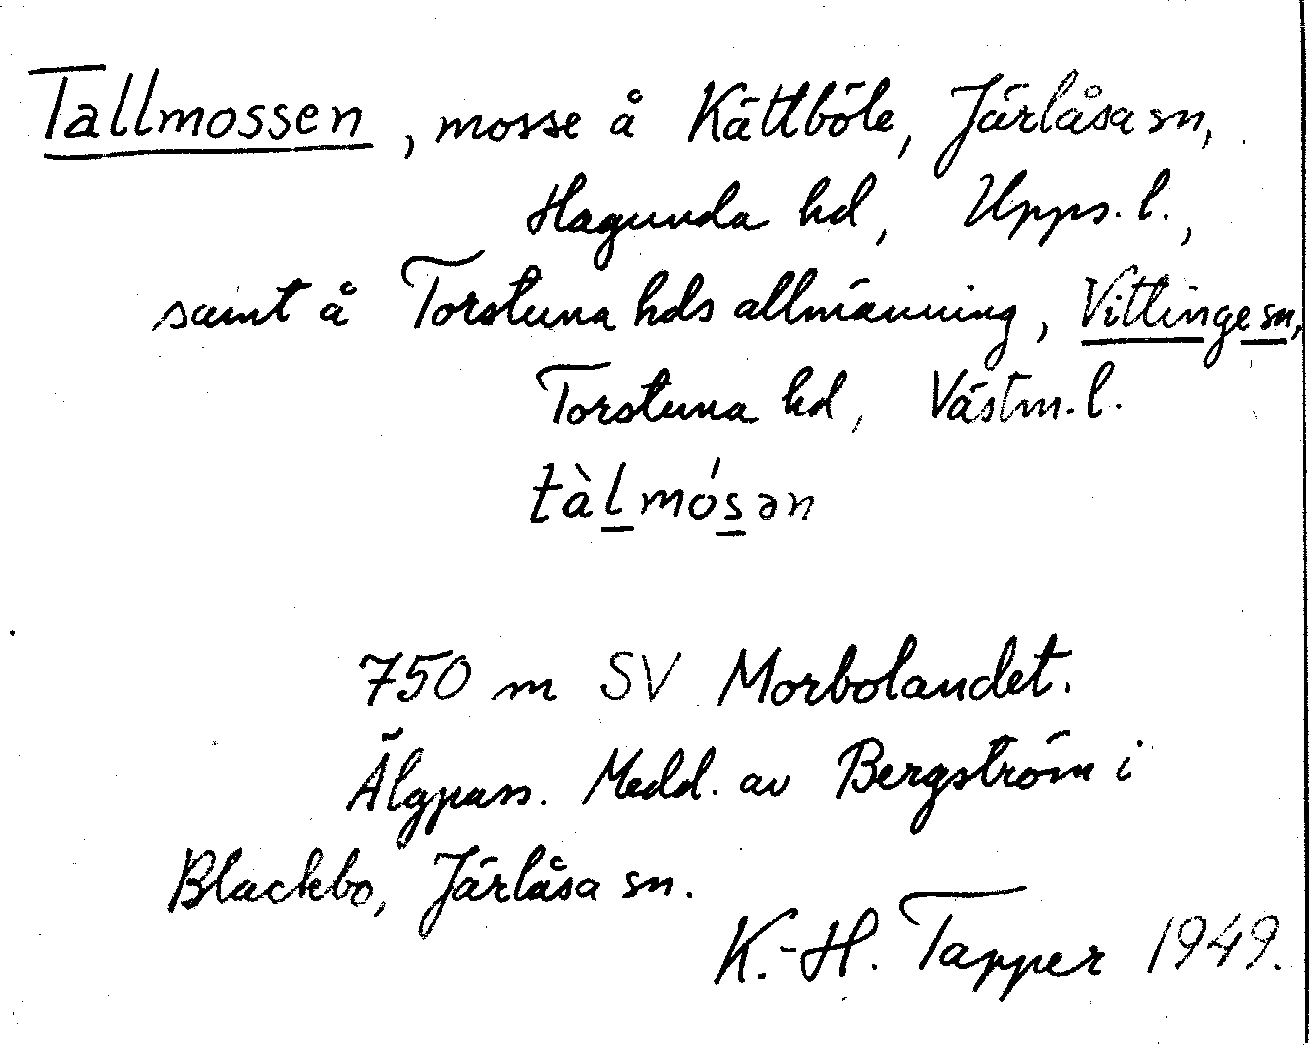 Tallmossen, mosse å Kättböle, Järlåsa sn,
Hagunda hd, Upps. l.,
samt å Torstuna hds allmänning, Vittinge sn,
Torstuna hd, Västm. l.
tàl̲mós̲ən
750 m SV Morbolandet.
Älgpass. Medd. av Bergström i
Blackbo, Järlåsa sn.
K.-H. Tapper 1949.